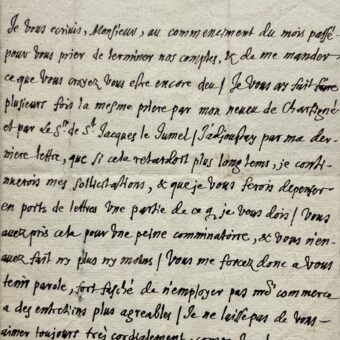 Je vous écrivis, Monsieur, au commenciment du mois passé,
pour vous prier de terminer nos comptes, & de me mander
ce que vous croyez vous estre encore deu / Je vous ay fait faire
plusieurs fois la mesme priere par mon neveu de Charsigné
et par le Sr. de St. Jacques le Jumel / J'adjoustay par ma der-
niere lettre, que si cela retardoit plus longtems, je conti-
nuerois mes sollicitations, & que je vous ferois depenser
en ports de lettres une partie de ce q. je vous dois / Vous
avez pris cela pour une peine comminatoire, & vous n'en-
avez fait ny plus ny moins / Vous me forcez donc a vous
tenir parole, fort fasché de n'employer pas nre commerce
a des entretiens plus agreables / Je ne laisse pas de vous-
aimer toujours très cordialement,